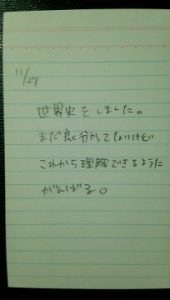 11/27
世界史をしました。
まだ良く分かってないけど
これから理解できるように
がんばる。